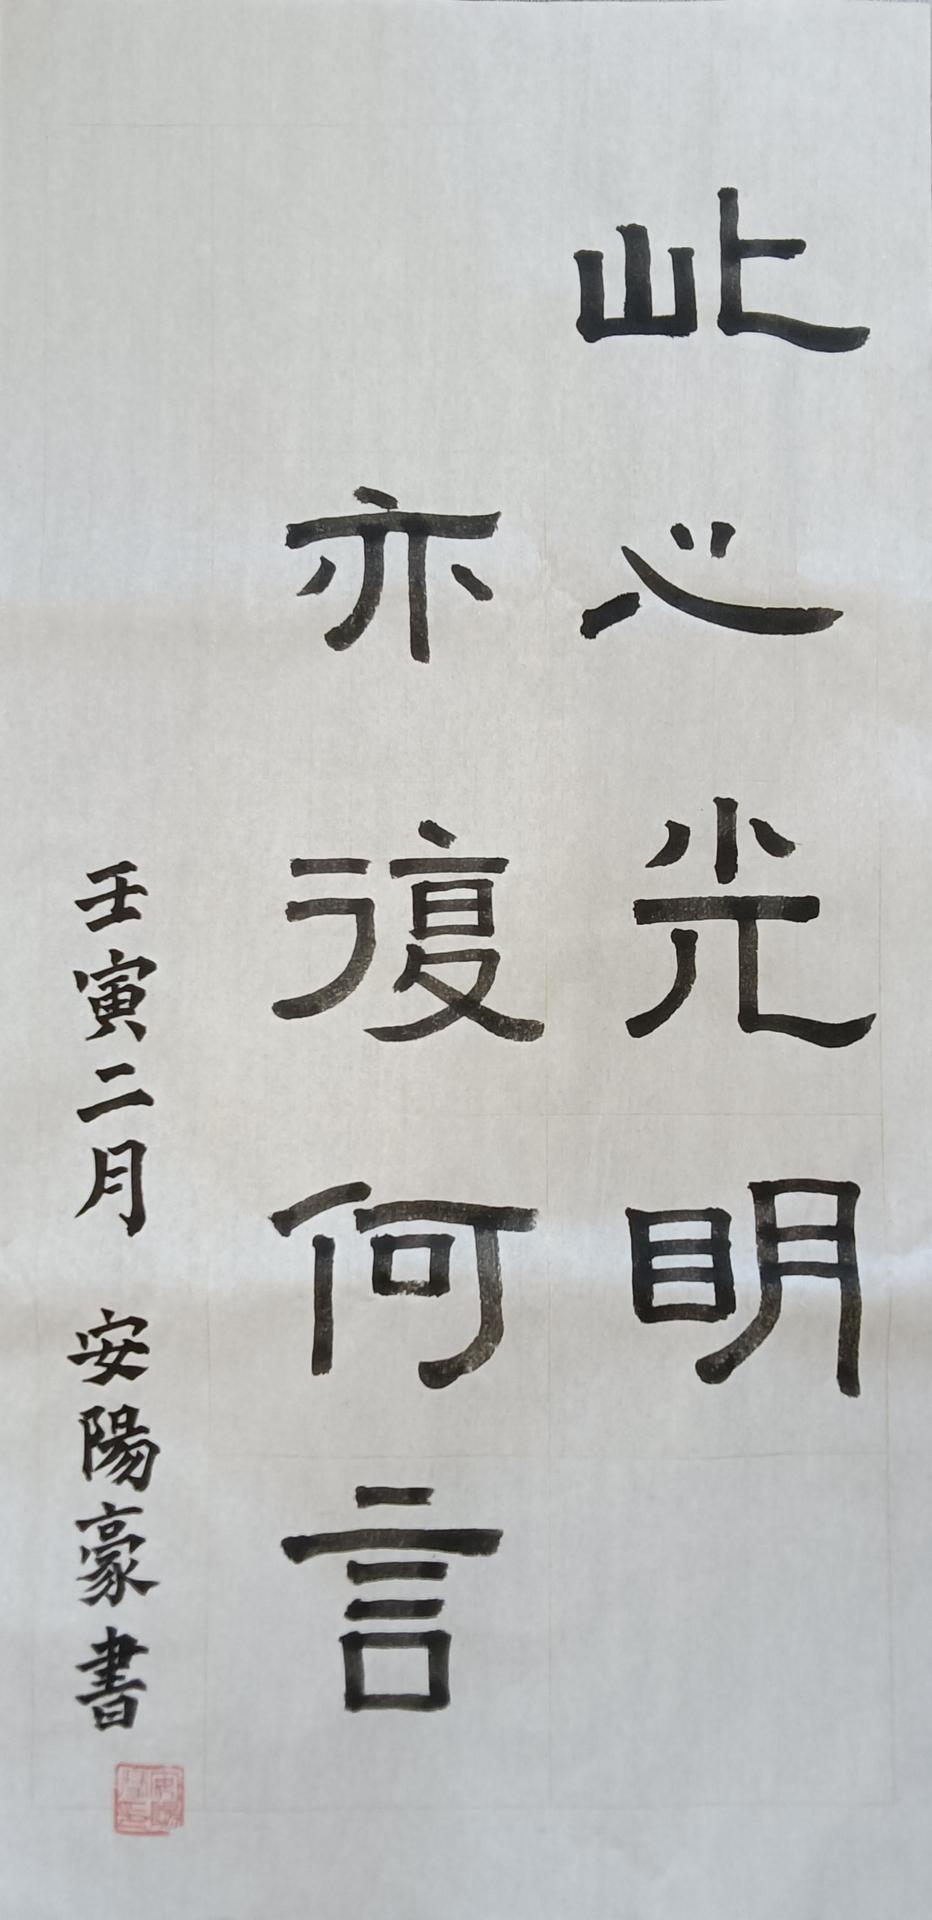 此心光明
亦復何言
壬寅二月 安陽豪書